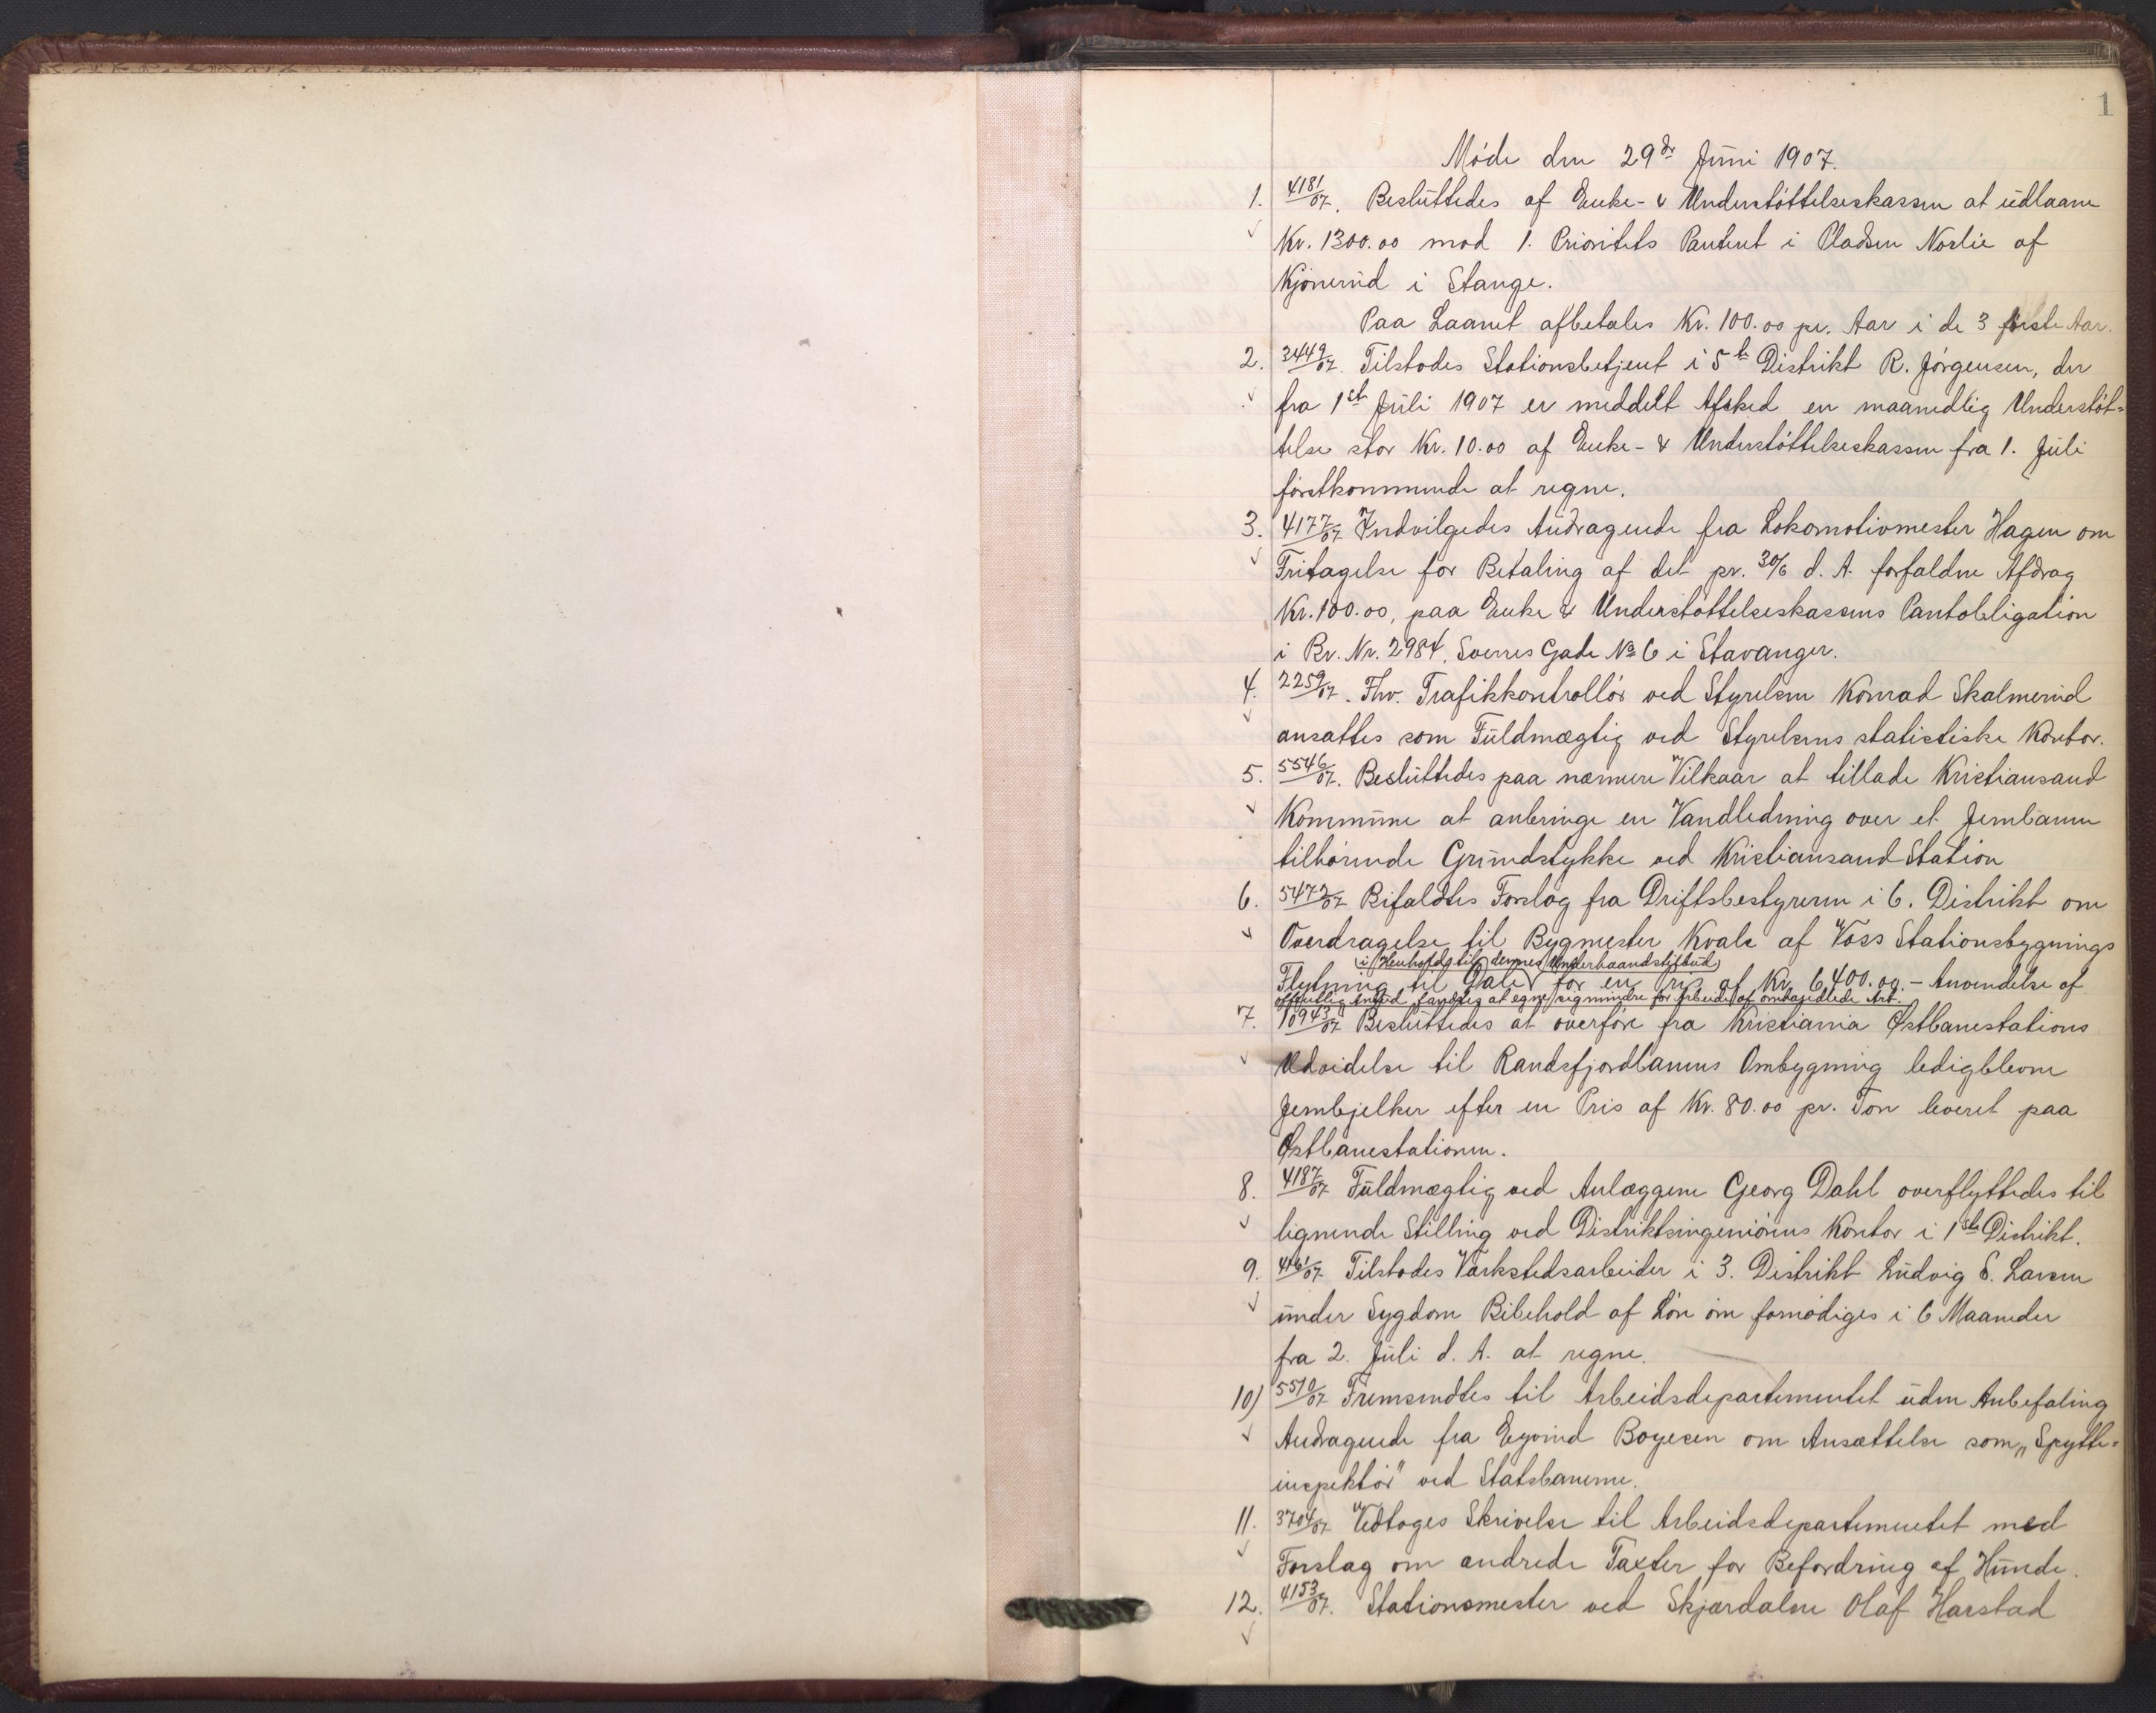 1
Møde den 29de Juni 1907.
1. 4181/07. Besluttedes af Enke- & Understøttelseskassen at udlaane
Kr. 1300.00 mod 1. Prioritets Panteret i Pladsen Norlie af
Kjønerud i Stange.
Paa Laanet afbetales Kr. 100.00 pr. Aar i de 3 første Aar.
2. 3449/07. Tilstodes Stationsbetjent i 5te Distrikt R. Jørgensen, der
fra 1st Juli 1907 er meddelt Afsked en maanedlig Understøt=
telse stor Kr. 10.00 af Enke- & Understøttelseskassen fra 1. Juli
førstkommende at regne.
3. 4177/07 Indvilgedes Andragende fra Lokomotivmester Hagen om
Fritagelse for Betaling af det pr. 30/6 d. A. forfaldne Afdrag
Kr. 100.00, paa Enke & Understøttelseskassens Pantobligation
i Br. Nr. 2984, Sverres Gade No 6 i Stavanger.
4. 2259/07. Fhv. Trafikkontrollør ved Styrelsen Konrad Skalmerud
ansattes som Fuldmægtig ved Styrelsens statistiske Kontor.
5. 5546/07. Besluttedes paa nærmere Vilkaar at tillade Kristiansand
Kommune at anbringe en Vandledning over et Jernbanen
tilhørende Grundstykke ved Kristiansand Station
6. 5472/07 Bifaldtes Forslag fra Driftsbestyreren i 6. Distrikt om
Overdragelse til Bygmester Kvale af Voss Stationsbygnings
(i Henhold til dennes Underhaandstilbud)
Flytning til Dale for en Pris af Kr. 6,400.00. - Anvendelse af
offentlig Anbud fandtes at egne sig mindre for Arbeide af omhandlede Art.
7. 10943/07 Besluttedes at overføre fra Kristiania Østbanestations
Udvidelse til Randsfjordbanens Ombygning ledigblevne
Jernbjelker efter en Pris af Kr. 80.00 pr. Ton leveret paa
Østbanestationen.
8. 4187/07 Fuldmægtig ved Anlæggene Georg Dahl overflyttedes til
lignende Stilling ved Distriktsingeniørens Kontor i 1ste Distrikt.
9. 4161/07 Tilstodes Værkstedsarbeider i 3. Distrikt Ludvig S. Larsen
under Sygdom Bibehold af Løn om fornødiges i 6 Maaneder
fra 2. Juli d. A. at regne.
10) 5510/07 Fremsendtes til Arbeidsdepartementet uden Anbefaling
Andragende fra Eyvind Boyesen om Ansættelse som „Spytte=
inspektør" ved Statsbanerne.
11. 3704/07 Vedtoges Skrivelse til Arbeidsdepartementet med
Forslag om ændrede Taxter for Befordring af Hunde.
12. 4153/07. Stationsmester ved Skjærdalen Olaf Harstad